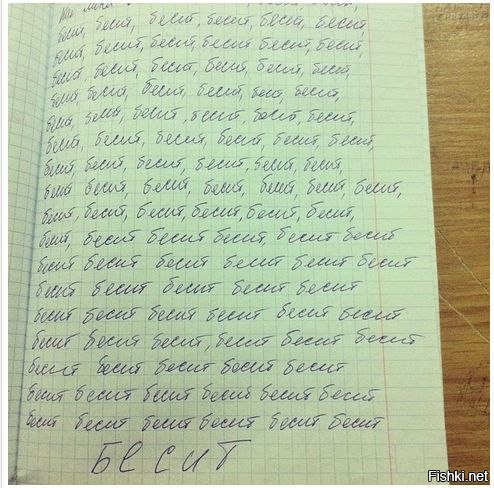 Как меня
бесит, бесит, бесит, бесит, бесит, бесит
бесит, бесит, бесит, бесит бесит, бесит,
бесит, бесит, бесит, бесит, бесит, бесит,
бесит, бесит, бесит, бесит, бесит, бесит,
бесит, бесит, бесит, бесит, бесит, бесит,
бесит, бесит, бесит, бесит, бесит, бесит,
бесит, бесит, бесит, бесит, бесит, бесит,
бесит бесит, бесит, бесит, бесит, бесит, бесит,
бесит, бесит, бесит, бесит, бесит, бесит,
бесит, бесит бесит бесит, бесит бесит
бесит бесит бесит бесит бесит бесит
бесит бесит бесит бесит бесит
бесит бесит бесит бесит бесит бесит
бесит бесит бесит, бесит бесит бесит
бесит бесит бесит бесит бесит
бесит бесит бесит бесит бесит бесит
бесит бесит бесит бесит бесит бесит
БЕСИТ
Fishki.net